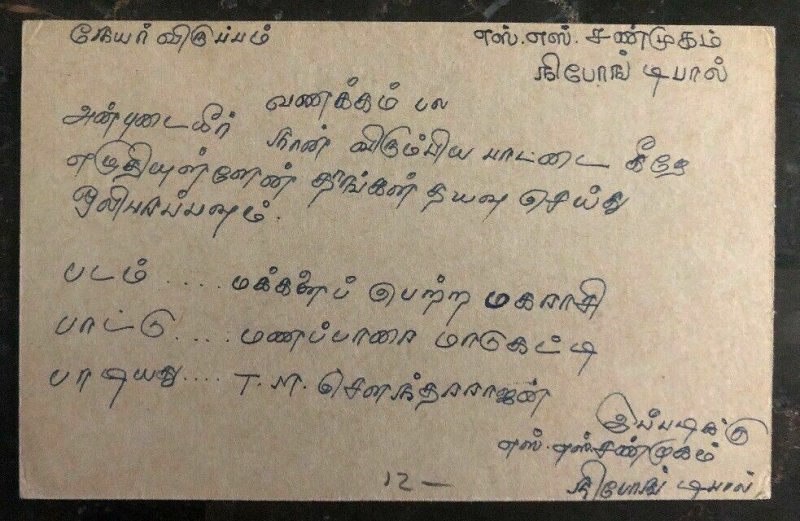 நேயர் விருப்பம்
எஸ்.எஸ். சண்முகம்
நிபோங் டிபால்
வணக்கம் பல
அன்புடையீர் நான் விரும்பிய பாட்டை கீழே
எழுதியுள்ளேன் தாங்கள் தயவு செய்து
ஒலிபரப்பவும்.
படம் .... மக்களைப் பெற்ற மகராசி
பாட்டு .... மணப்பாறை மாடுகட்டி
பாடியது .... T.M. சௌந்தரராஜன்
இப்படிக்கு
எஸ். எஸ் சண்முகம்
நிபோங் டிபால்
12 —